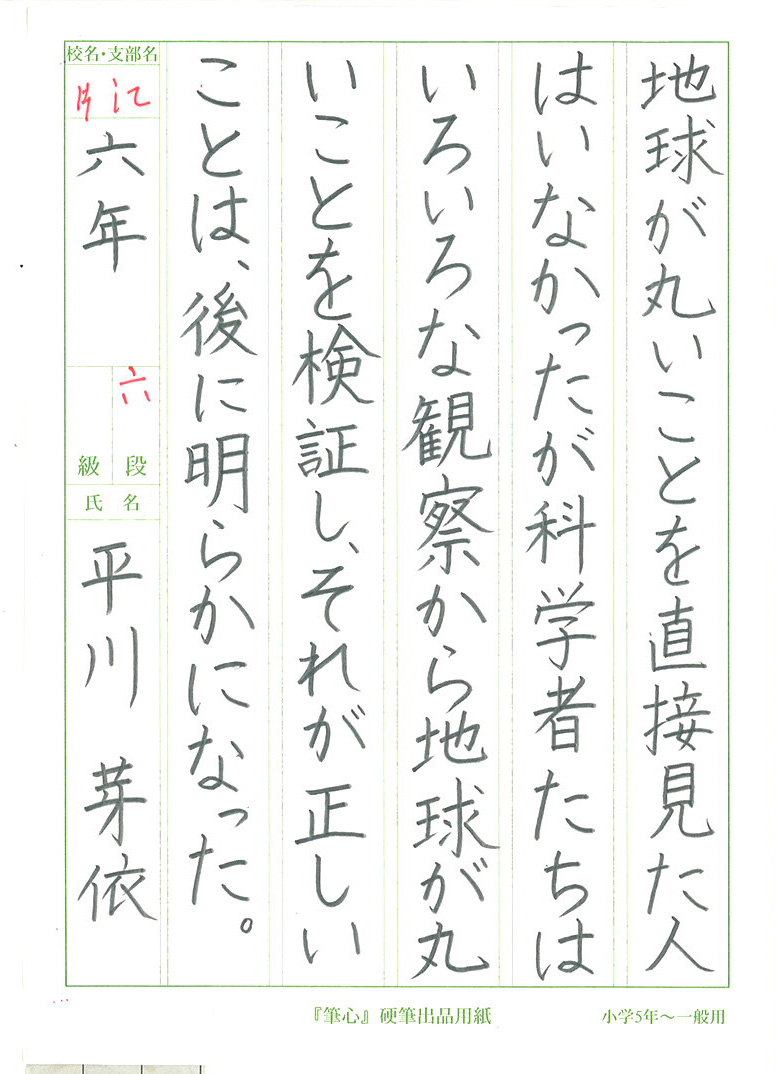 地球が丸いことを直接見た人
はいなかったが科学者たちは
いろいろな観察から地球が丸
いことを検証し、それが正しい
ことは、後に明らかになった。
校名・支部名
片江
六年
六
段
級
氏名
平川 芽依
『筆心』硬筆出品用紙
小学5年〜一般用